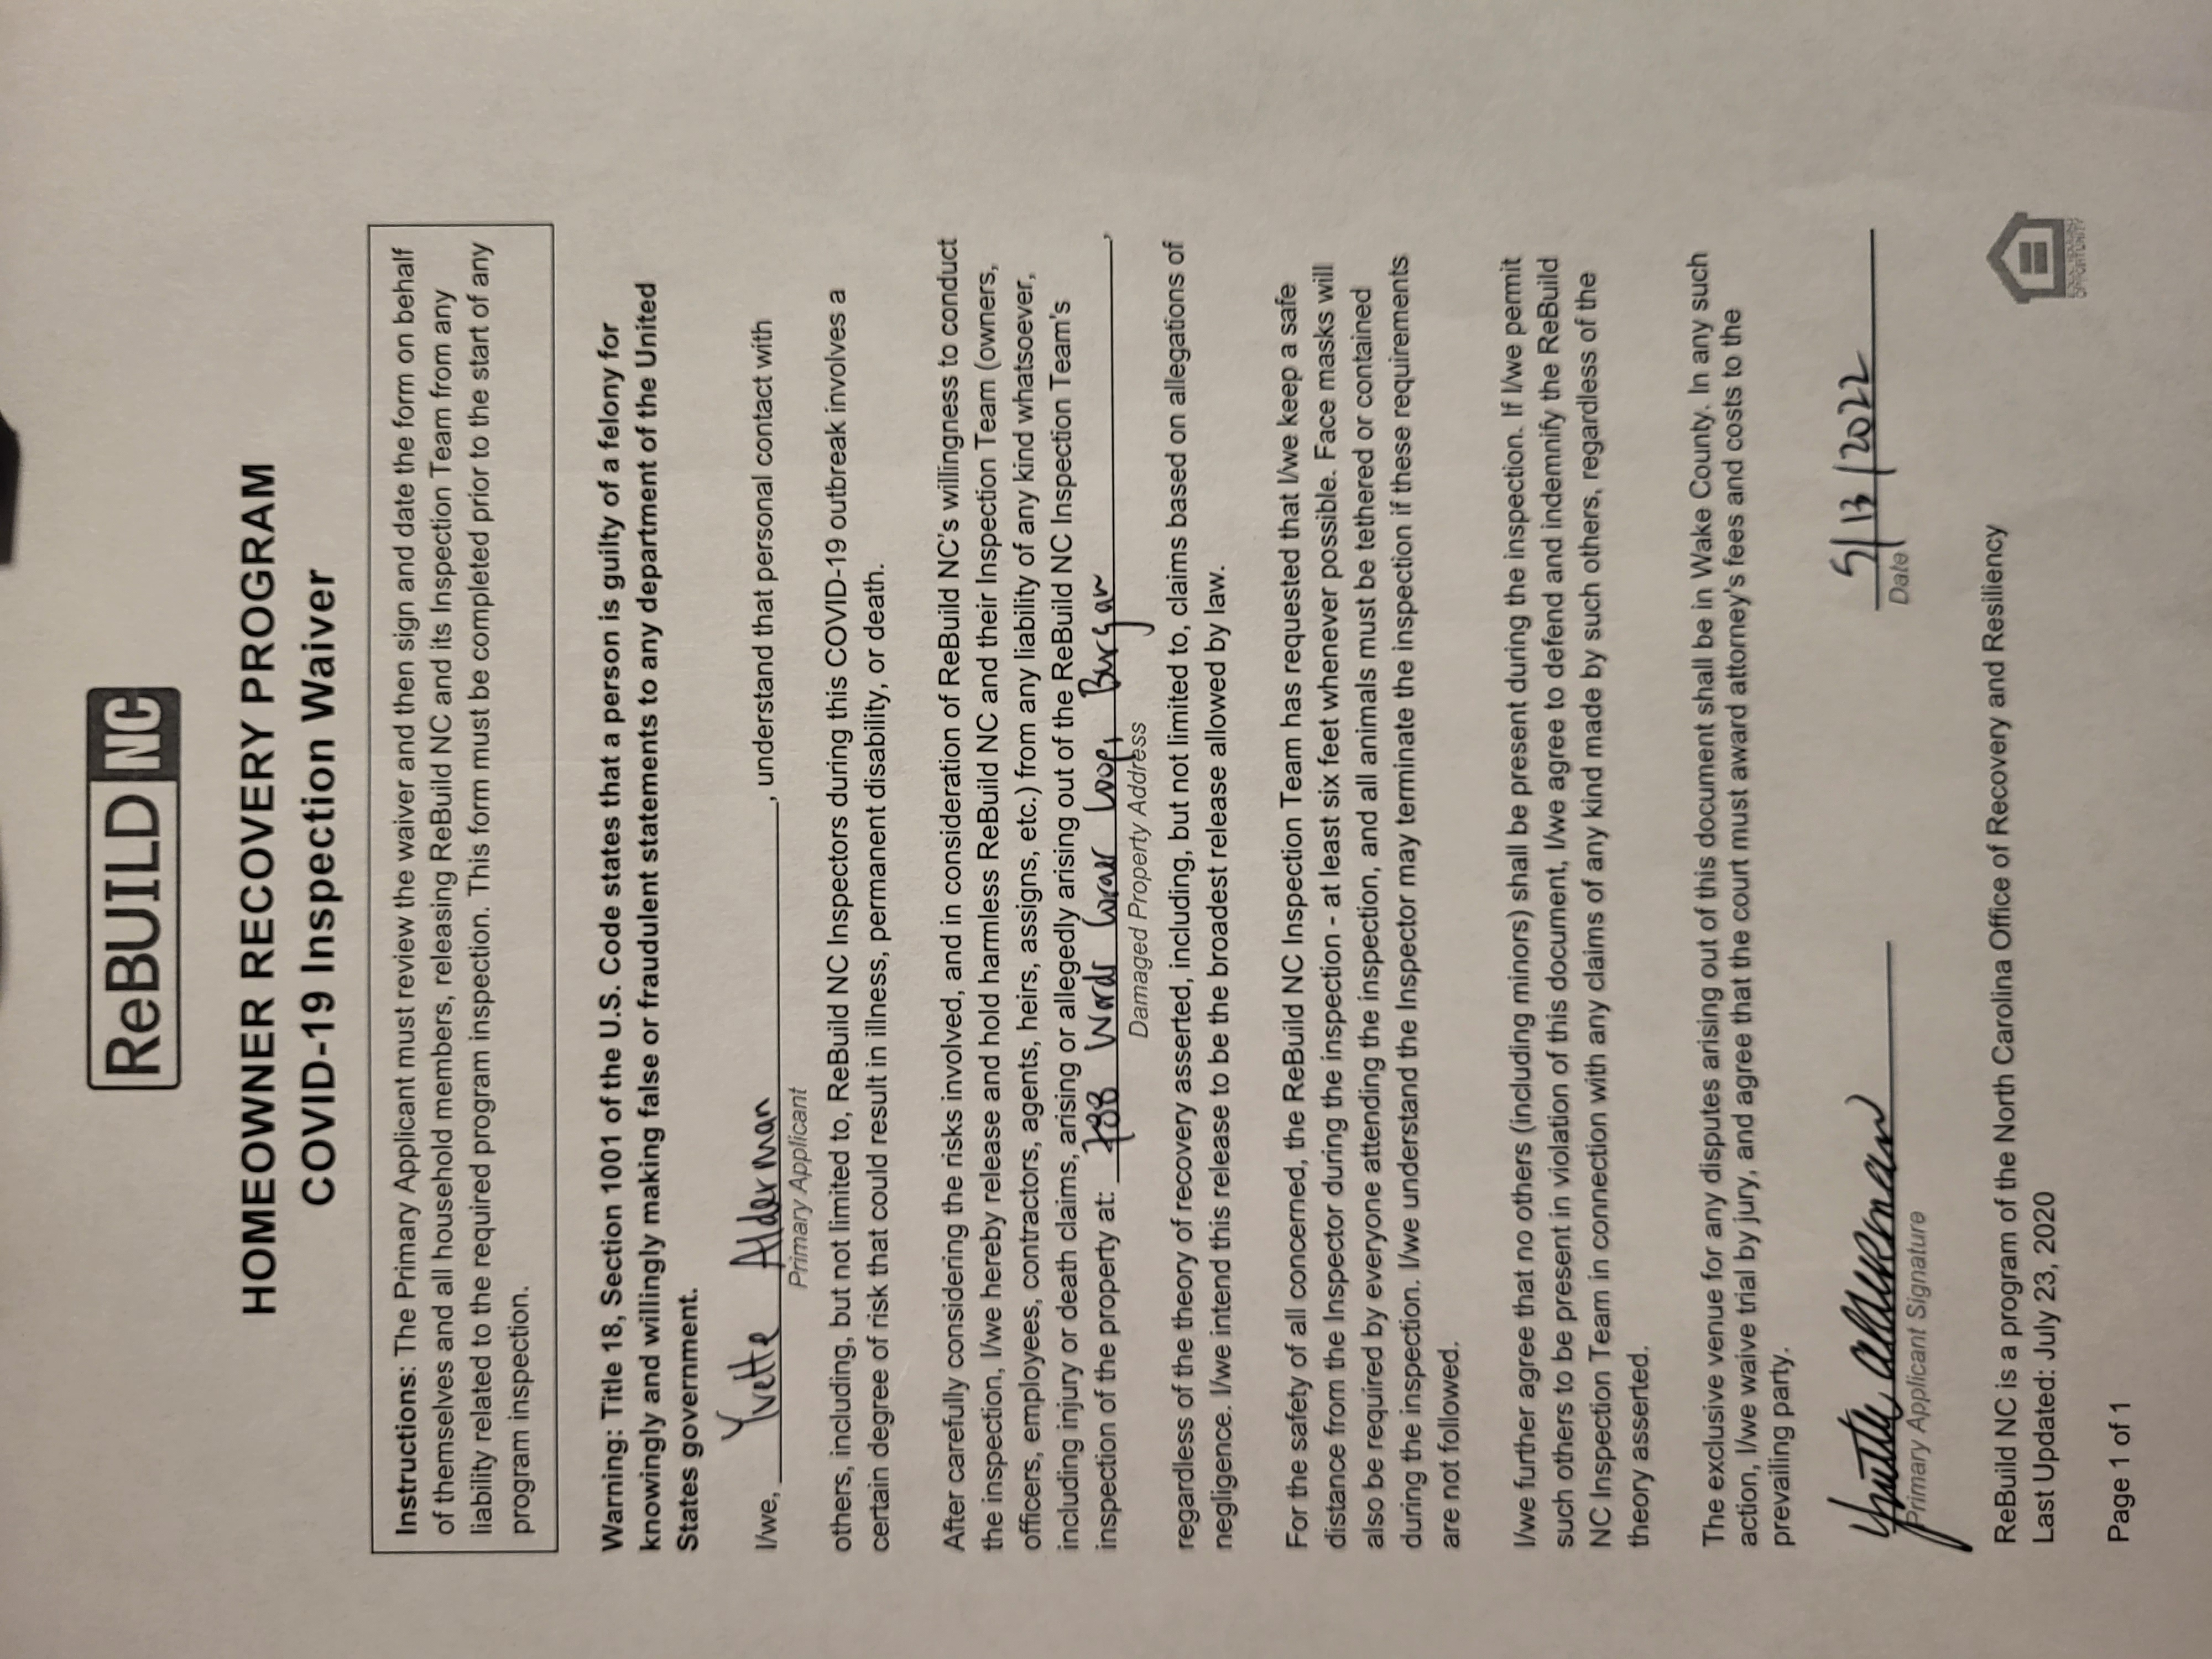 ReBUILD NC
HOMEOWNER RECOVERY PROGRAM
COVID-19 Inspection Waiver
Instructions: The Primary Applicant must review the waiver and then sign and date the form on behalf
of themselves and all household members, releasing ReBuild NC and its Inspection Team from any
liability related to the required program inspection. This form must be completed prior to the start of any
program inspection.
Warning: Title 18, Section 1001 of the U.S. Code states that a person is guilty of a felony for
knowingly and willingly making false or fraudulent statements to any department of the United
States government.
I/we, Yvette Alderman, understand that personal contact with
Primary Applicant
others, including, but not limited to, ReBuild NC Inspectors during this COVID-19 outbreak involves a
certain degree of risk that could result in illness, permanent disability, or death.
After carefully considering the risks involved, and in consideration of ReBuild NC's willingness to conduct
the inspection, I/we hereby release and hold harmless ReBuild NC and their Inspection Team (owners,
officers, employees, contractors, agents, heirs, assigns, etc.) from any liability of any kind whatsoever,
including injury or death claims, arising or allegedly arising out of the ReBuild NC Inspection Team's
inspection of the property at: 788 Ward Loop, Burgaw,
Damaged Property Address
regardless of the theory of recovery asserted, including, but not limited to, claims based on allegations of
negligence. I/we intend this release to be the broadest release allowed by law.
For the safety of all concerned, the ReBuild NC Inspection Team has requested that I/we keep a safe
distance from the Inspector during the inspection - at least six feet whenever possible. Face masks will
also be required by everyone attending the inspection, and all animals must be tethered or contained
during the inspection. I/we understand the Inspector may terminate the inspection if these requirements
are not followed.
I/we further agree that no others (including minors) shall be present during the inspection. If I/we permit
such others to be present in violation of this document, I/we agree to defend and indemnify the ReBuild
NC Inspection Team in connection with any claims of any kind made by such others, regardless of the
theory asserted.
The exclusive venue for any disputes arising out of this document shall be in Wake County. In any such
action, I/we waive trial by jury, and agree that the court must award attorney's fees and costs to the
prevailing party.
Yvette Alderman 5/13/2022
Primary Applicant Signature Date
ReBuild NC is a program of the North Carolina Office of Recovery and Resiliency
Last Updated: July 23, 2020
Page 1 of 1